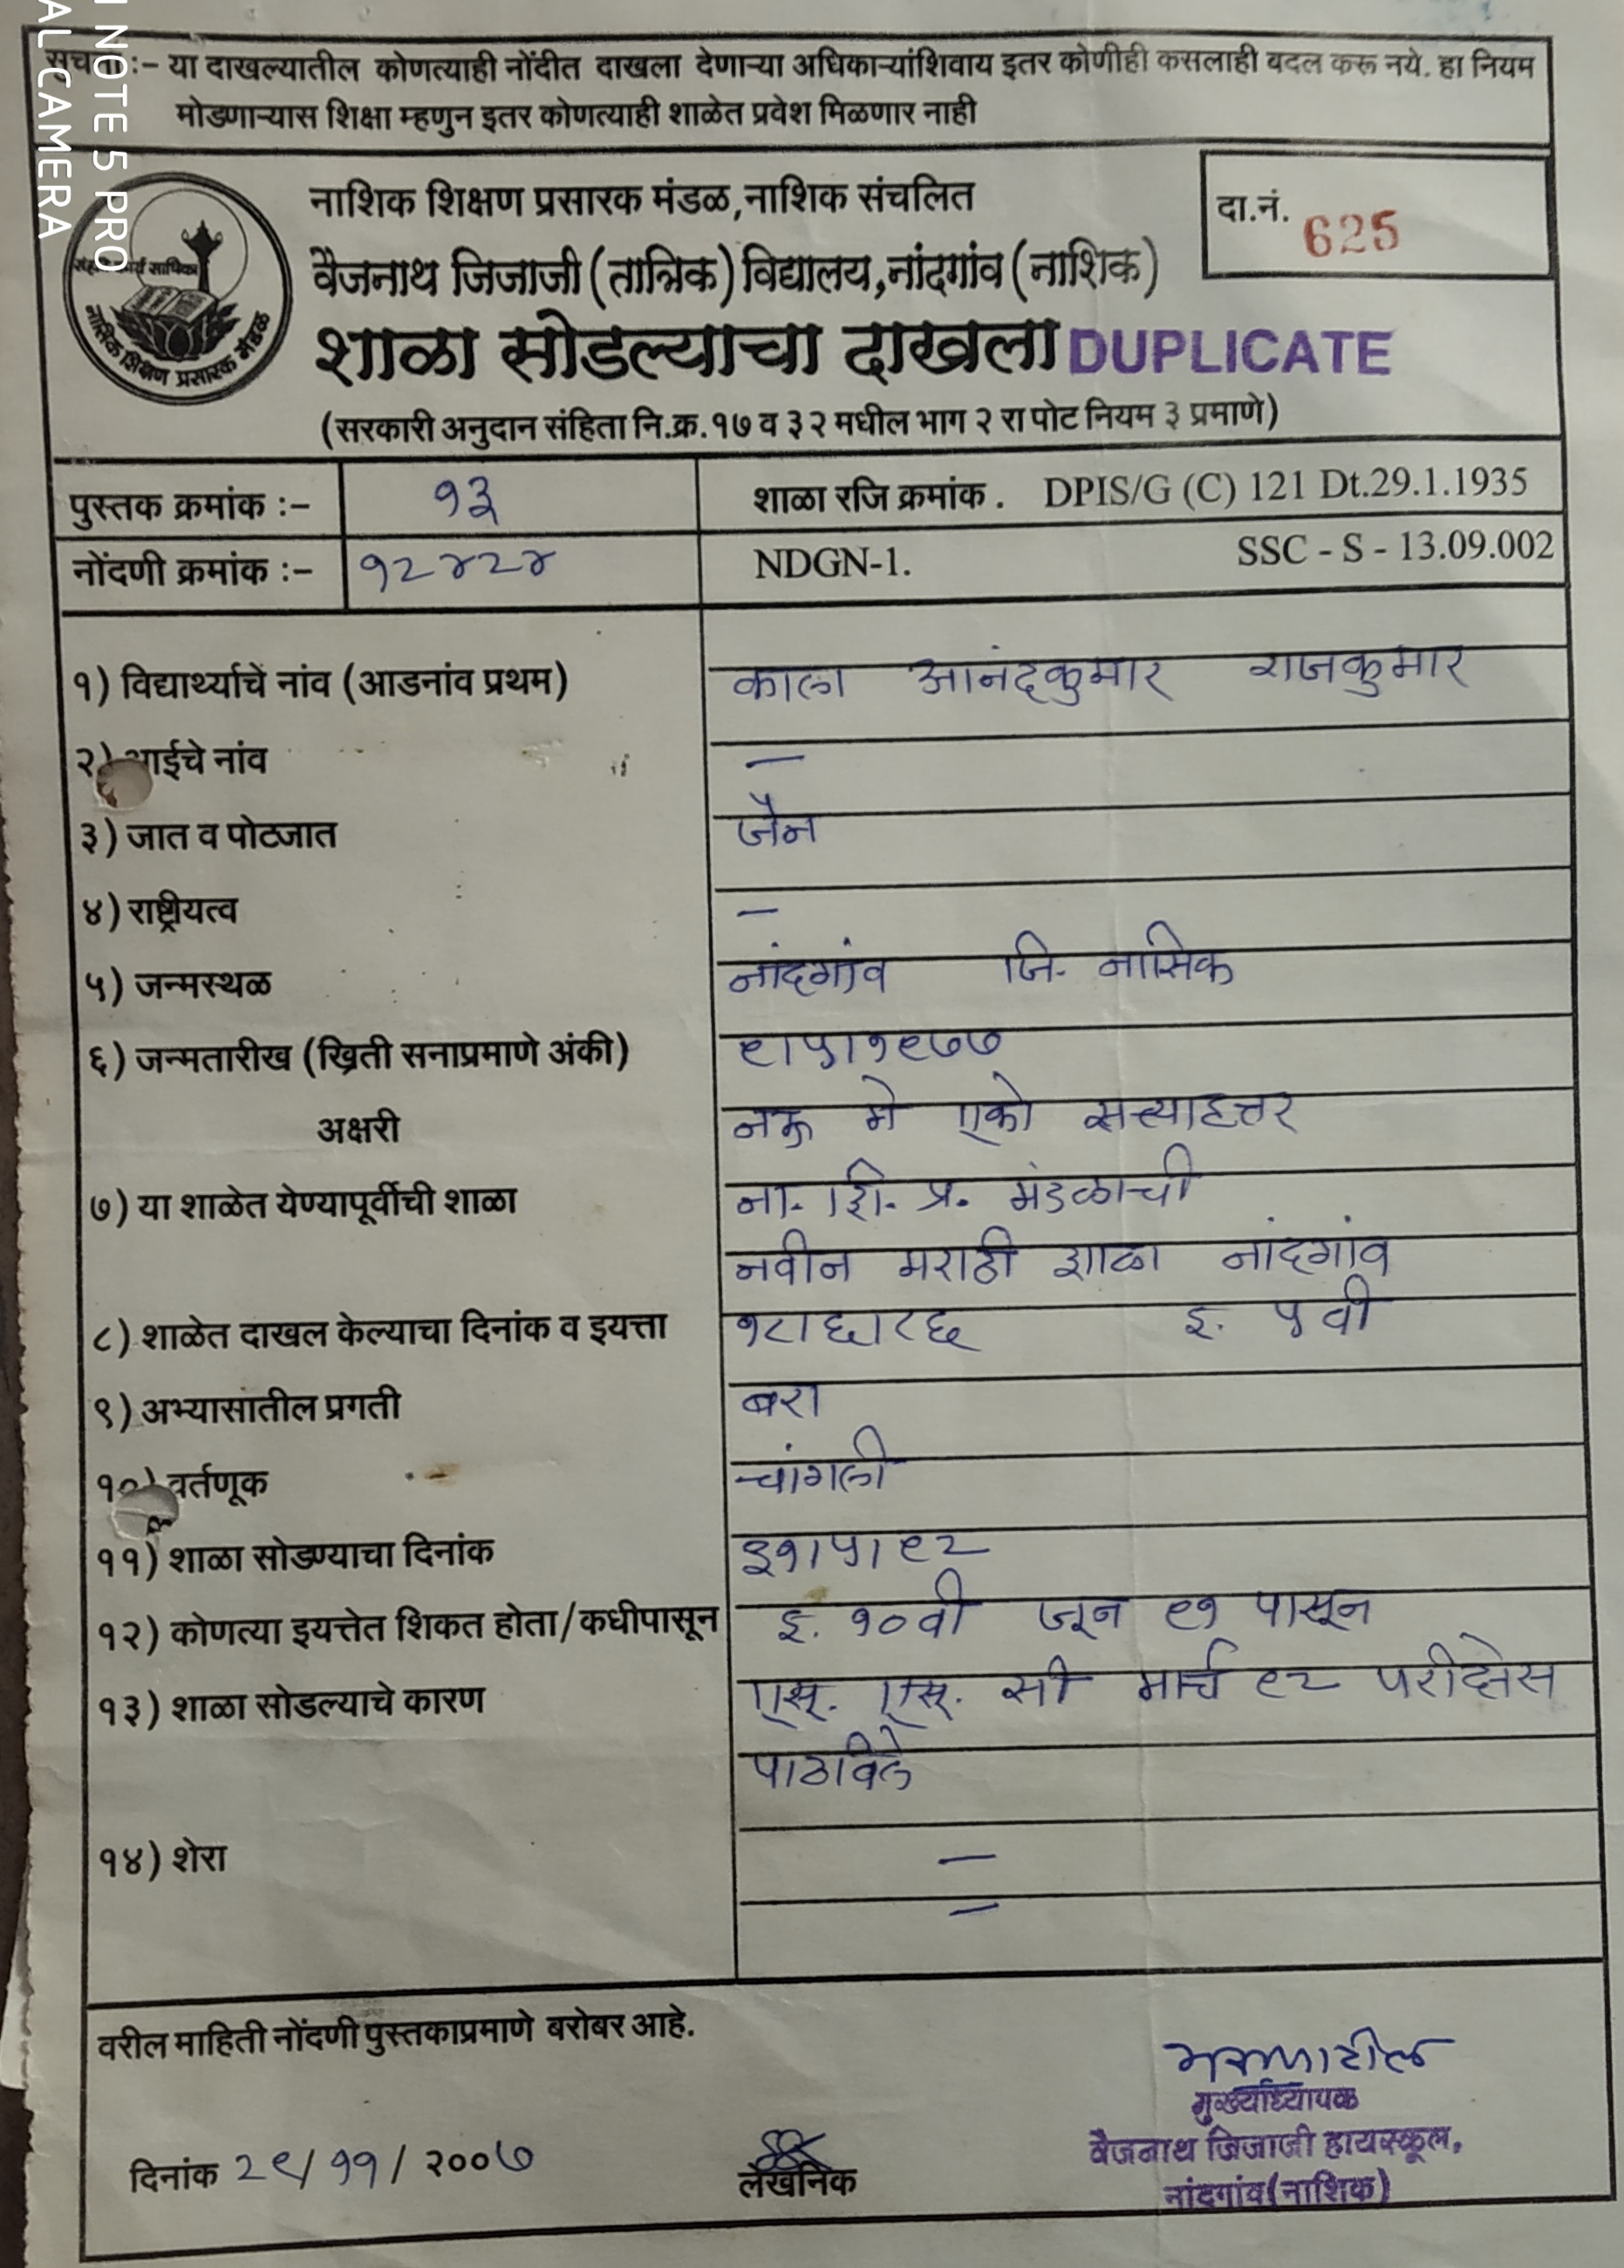 I NOTE 5 PRO
AL CAMERA
सूचना :- या दाखल्यातील कोणत्याही नोंदीत दाखला देणाऱ्या अधिकाऱ्यांशिवाय इतर कोणीही कसलाही बदल करू नये. हा नियम
मोडणाऱ्यास शिक्षा म्हणुन इतर कोणत्याही शाळेत प्रवेश मिळणार नाही
नाशिक शिक्षण प्रसारक मंडळ,नाशिक संचलित
दा.नं. 625
वैजनाथ जिजाजी (तान्त्रिक) विद्यालय,नांदगांव (नाशिक)
नाशिक शिक्षण प्रसारक मंडळ
शाळा सोडल्याचा दाखला DUPLICATE
(सरकारी अनुदान संहिता नि.क्र.१७ व ३२ मधील भाग २ रा पोट नियम ३ प्रमाणे)
पुस्तक क्रमांक :- १३ शाळा रजि क्रमांक . DPIS/G (C) 121 Dt.29.1.1935
नोंदणी क्रमांक :- १२४२४ NDGN-1. SSC - S - 13.09.002
१) विद्यार्थ्याचे नांव (आडनांव प्रथम) काला आनंदकुमार राजकुमार
२) आईचे नांव —
३) जात व पोटजात जैन
४) राष्ट्रीयत्व —
५) जन्मस्थळ नांदगांव जि. नासिक
६) जन्मतारीख (ख्रिती सनाप्रमाणे अंकी) ९।५।१९७७
अक्षरी नऊ मे एको सत्त्याहत्तर
७) या शाळेत येण्यापूर्वीची शाळा ना. शि. प्र. मंडळाची
नवीन मराठी शाळा नांदगांव
८) शाळेत दाखल केल्याचा दिनांक व इयत्ता १८।६।८६ इ. ५ वी
९) अभ्यासातील प्रगती बरा
१०) वर्तणूक चांगली
११) शाळा सोडण्याचा दिनांक ३१।५।९२
१२) कोणत्या इयत्तेत शिकत होता/कधीपासून इ. १०वी जून ९१ पासून
१३) शाळा सोडल्याचे कारण एस. एस. सी मार्च ९२ परीक्षेस
पाठविले
१४) शेरा —
—
वरील माहिती नोंदणी पुस्तकाप्रमाणे बरोबर आहे.
मुख्याध्यापक
वैजनाथ जिजाजी हायस्कूल,
दिनांक २९/११/२००७ लेखनिक
नांदगांव(नाशिक)